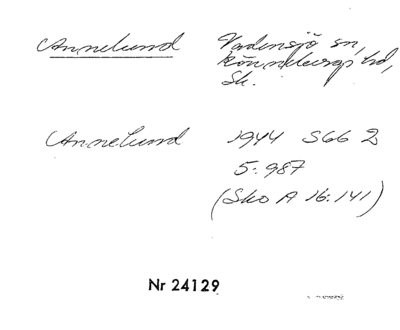 Annelund Vadensjö sn,
Rönnebergs hd,
Sk.
Annelund 1944 S66 2
5:987
(Sko A 16:141)
Nr 24129